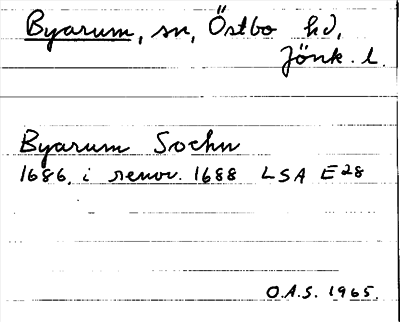 Byarum, sn, Östbo hd,
Jönk. l.
Byarum Sochn
1686. i renov. 1688 LSA E28
O.A.S. 1965.